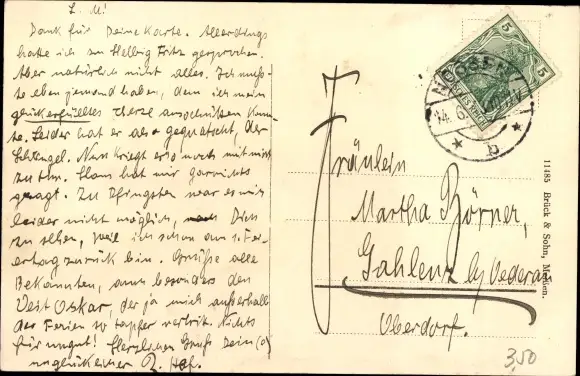 L. M!
Dank für Deine Karte. Allerdings
hatte ich zu Hellbig Fritz gesprochen.
Aber natürlich nicht alles. Ich muß-
te eben jemand haben, dem ich mein
glückerfülltes Herze ausschütten konn-
te. Leider hat er also gequatscht, der
Schlengel. Nun kriegt er's noch mit mir
zu thun. Hans hat mir garnichts
gesagt. Zu Pfingsten war es mir
leider nicht möglich, Dich
zu sehen, weil ich schon am 1. Fei-
ertag zurück bin. Grüße alle
Bekannten, ganz besonders den
Veit Oskar, der ja mich außerhalb
der Ferien so tapfer vertritt. Nichts
für ungut! Herzlichen Gruß Dein (o)
unglücklicher R. Hof.
5
5
NOSSEN
14. 6.
* b *
Fräulein
Martha Börner,
Gahlenz bei Oederan
Oberdorf.
11485 Brück & Sohn, Meißen.
3,50